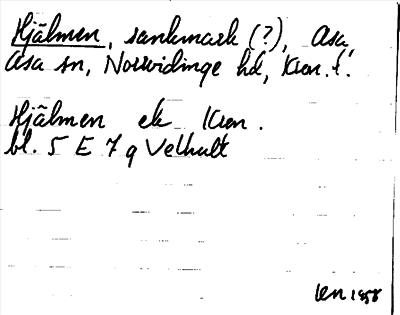 Hjälmen, sankmark (?), Asa,
Asa sn, Norrvidinge hd, Kron. l.
Hjälmen ek Kron.
bl. 5 E 7 g Velhult
1958